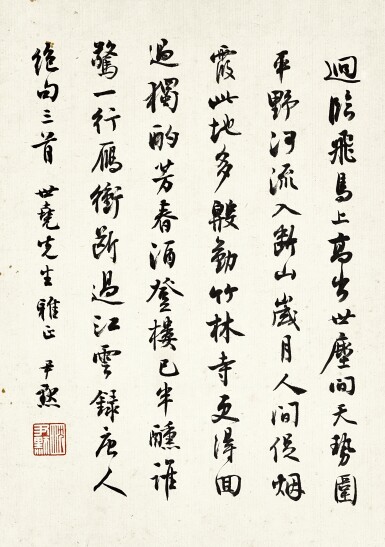 迥臨飛鳥上高出世塵間天勢圍
平野河流入斷山歲月人間促烟
霞此地多殷勤竹林寺更得回
過獨酌芳春酒登樓已半醺誰
驚一行鴈衝斷過江雲錄唐人
絕句三首 世堯先生雅正 尹默
沈尹默